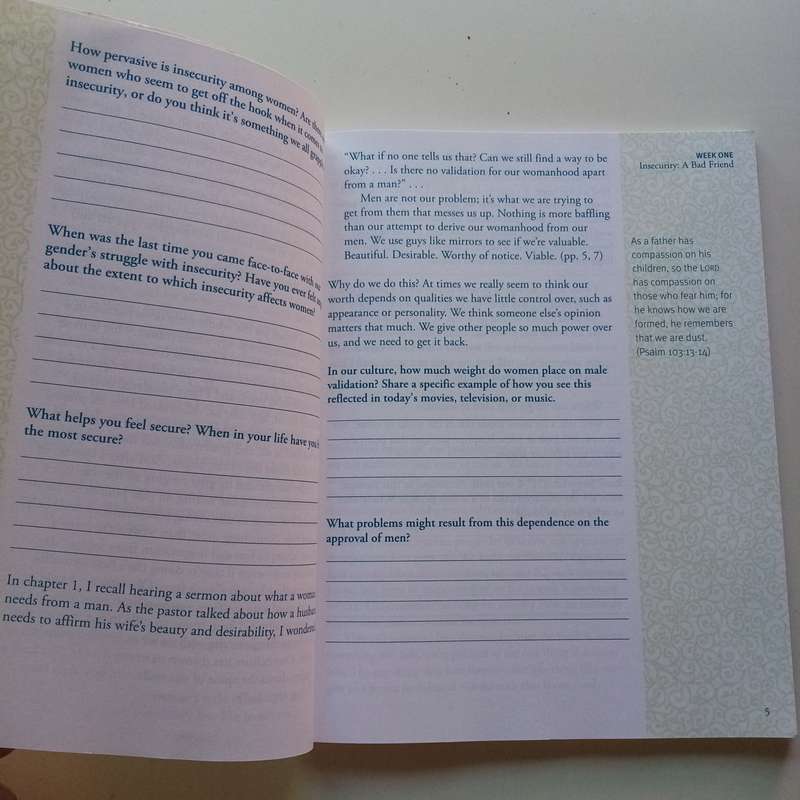 How pervasive is insecurity among women? Are
women who seem to get off the hook when it comes
insecurity, or do you think it's something we all
When was the last time you came face-to-face with our
gender's struggle with insecurity? Have you ever felt
about the extent to which insecurity affects women?
What helps you feel secure? When in your life have you
the most secure?
In chapter 1, I recall hearing a sermon about what a
needs from a man. As the pastor talked about how a
needs to affirm his wife's beauty and desirability, I
WEEK ONE
Insecurity: A Bad Friend
"What if no one tells us that? Can we still find a way to be
okay? . . . Is there no validation for our womanhood apart
from a man?" . . .
Men are not our problem; it's what we are trying to
get from them that messes us up. Nothing is more baffling
than our attempt to derive our womanhood from our
men. We use guys like mirrors to see if we're valuable.
Beautiful. Desirable. Worthy of notice. Viable. (pp. 5, 7)
Why do we do this? At times we really seem to think our
worth depends on qualities we have little control over, such as
appearance or personality. We think someone else's opinion
matters that much. We give other people so much power over
us, and we need to get it back.
In our culture, how much weight do women place on male
validation? Share a specific example of how you see this
reflected in today's movies, television, or music.
What problems might result from this dependence on the
approval of men?
As a father has
compassion on his
children, so the LORD
has compassion on
those who fear him; for
he knows how we are
formed, he remembers
that we are dust.
(Psalm 103:13-14)
5